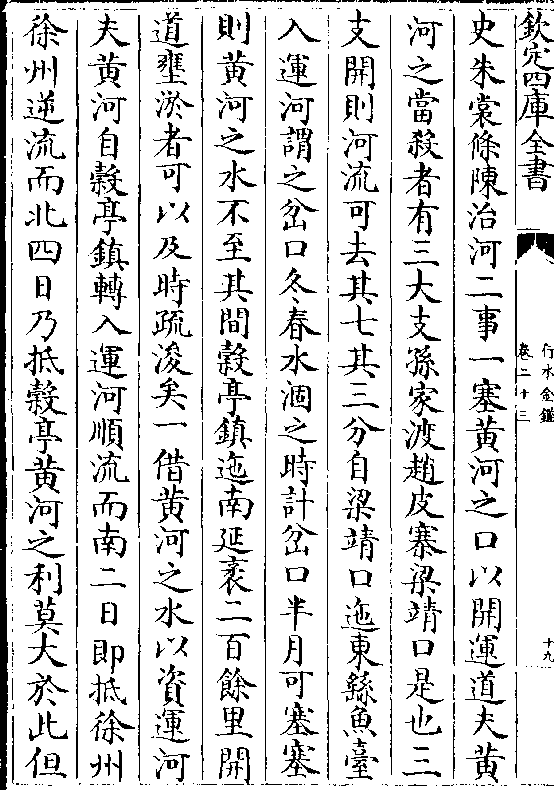 欽定四庫全書
行水金鑑
卷二十三
十九
史朱裳條陳治河二事一塞黄河之口以開運道夫黄
河之當殺者有三大支孫家渡趙皮寨梁靖口是也三
支開則河流可去其七其三分自梁靖口迤東繇魚臺
入運河謂之岔口冬春水涸之時計岔口半月可塞塞
則黄河之水不至其間榖亭鎮迤南延袤二百餘里開
道壅淤者可以及時疏浚矣一借黄河之水以資運河
夫黄河自榖亭鎮轉入運河順流而南二日即抵徐州
徐州逆流而北四日乃抵榖亭黄河之利莫大於此但